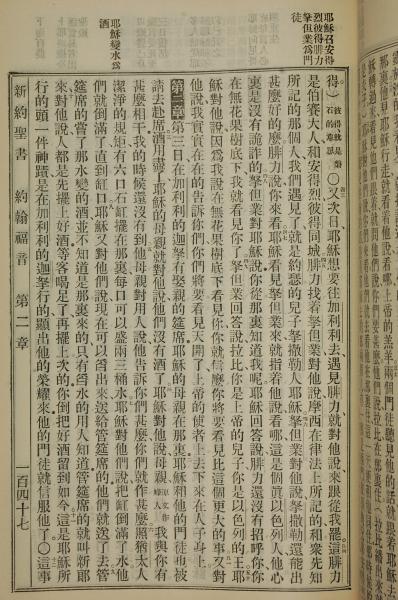 耶穌召安得
烈彼得腓力
拏但業為門
徒
耶穌變水為
酒
得、彼得就是磐石的意思〇又次日耶穌想要往加利利去遇見腓力就對他說來跟從我罷這腓力
是伯賽大人和安得烈彼得同城腓力找着拏但業對他說摩西在律法上所記的和衆先知
所記的那個人我們遇見了就是約瑟的兒子拏撒勒人耶穌拏但業對他說拏撒勒還能出
甚麼好的麼腓力說你來看耶穌看見拏但業來就指着他說看哪這是個眞以色列人他心
裏是沒有詭詐的拏但業對耶穌說你從那裏知道我呢耶穌回答說腓力還沒有招呼你你
在無花果樹底下我就看見你了拏但業回答說拉比你是上帝的兒子你是以色列的王耶
穌對他說因為我說在無花果樹底下看見你你就信麼你將要看見比這個更大的事又對
他說我實實在在的告訴你們你們將要看見天開了上帝的使者上去下來在人子身上
第二章第三日在加利利的迦拏有娶親的筵席耶穌的母親在那裏耶穌和他的門徒也被
請去赴席酒用盡了耶穌的母親就對他說他們沒有酒了耶穌對他說母親原文作婦人我與你有
甚麼相干我的時候還沒有到他母親對用人說他告訴你們甚麼你們就作甚麼照猶太人
潔淨的規矩有六口石缸擺在那裏每口可以盛兩三桶水耶穌對他們說把缸倒滿了水他
們就倒滿了直到缸口耶穌又對他們說現在可以舀出來送給管筵席的他們就送了去管
筵席的嘗了那水變的酒並不知道是那裏來的只有舀水的用人知道管筵席的就叫新郎
來對他說人都是先擺上好酒等客喝足了再擺上次的你倒把好酒留到如今這是耶穌所
行的頭一件神蹟是在加利利的迦拏行的顯出他的榮耀來他的門徒就信服他了〇這事
新約聖書　約翰福音　第二章　一百四十七